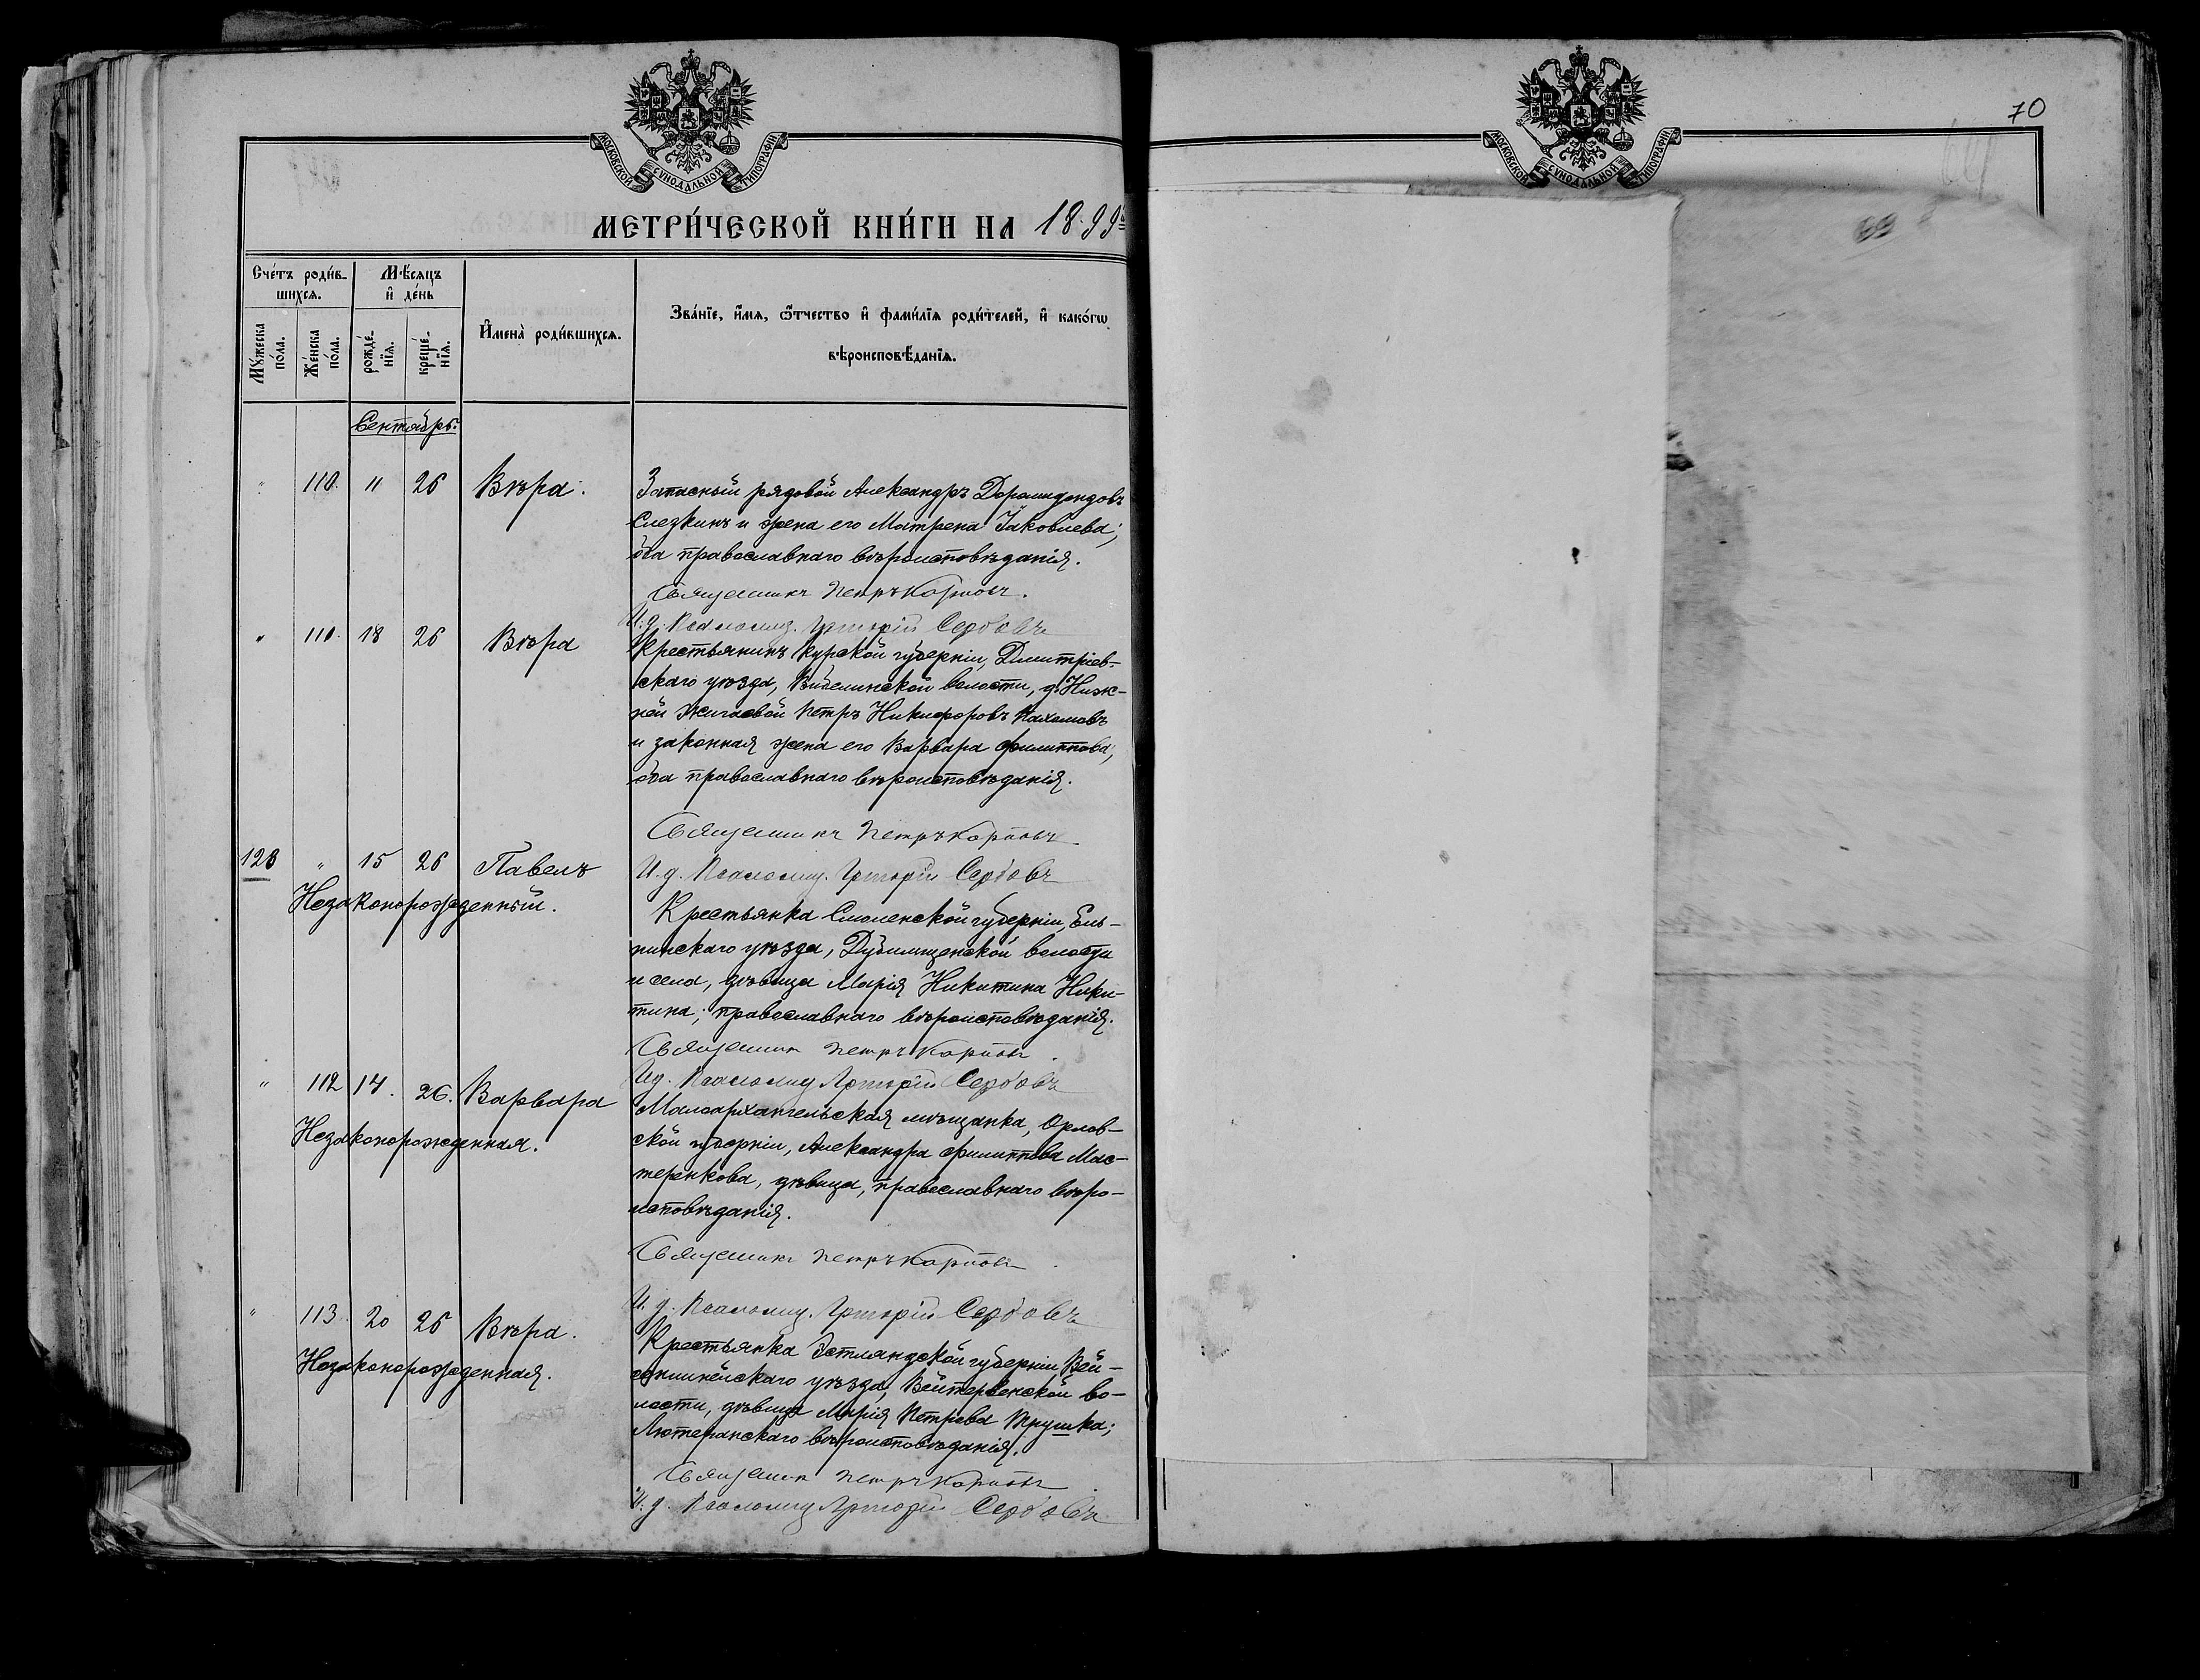 70
МОСКОВСКОЙ СѴНОДАЛЬНОЙ ТИПОГРАФІИ
МОСКОВСКОЙ СѴНОДАЛЬНОЙ ТИПОГРАФІИ
69
МЕТРИ́ЧЕСКОЙ КНИ́ГИ НА 1899
Сче́тъ роди́в-
шихсѧ.
Мѣ́сѧцъ
и҆ де́нь
Мꙋ́жеска
по́ла.
Же́нска
по́ла.
рожде́-
нїѧ.
креще́-
нїѧ.
И҆мена̀ роди́вшихсѧ.
Зва́нїе, и҆́мѧ, ѻ҆́тчество и҆ фами́лїѧ роди́телей, и҆ како́гѡ
вѣроисповѣ́данїѧ.
Сентябрь.
" 110. 11 26 Вѣра.
Запасный рядовой Александръ Дормидондовъ
Слезкинъ и жена его Матрена Іаковлева;
оба православнаго вѣроисповѣданія.
Священникъ Петръ Карповъ.
И. д. Псаломщ. Григорій Сербовъ
" 111. 18 26 Вѣра
Крестьянинъ Курской губерніи, Дмитріев-
скаго уѣзда, волости, д. Ниж-
ней Жигаевой Петръ Никифоровъ Пахомовъ
и законная жена его Варвара Филиппова;
оба православнаго вѣроисповѣданія.
Священникъ Петръ Карповъ
И. д. Псаломщ. Григорій Сербовъ
123 " 15 26 Павелъ
Незаконорожденный.
Крестьянка Смоленской губерніи, Ель-
нинскаго уѣзда, волости
и села, дѣвица Марія Никитина Ники-
тина; православнаго вѣроисповѣданія.
Священникъ Петръ Карповъ.
И. д. Псаломщ. Григорій Сербовъ
" 112 14. 26. Варвара
Незаконорожденная.
Малоархангельская мѣщанка, Орлов-
ской губерніи, Александра Филиппова Мас-
теренкова, дѣвица, православнаго вѣро-
исповѣданія.
Священникъ Петръ Карповъ.
И. д. Псаломщ. Григорій Сербовъ
" 113. 20 26 Вѣра.
Незаконорожденная.
Крестьянка Эстляндской губерніи Вей-
скаго уѣзда, во-
лости, дѣвица Марія Петрова Трушка;
Лютеранскаго вѣроисповѣданія.
Священникъ Петръ Карповъ.
И. д. Псаломщ. Григорій Сербовъ